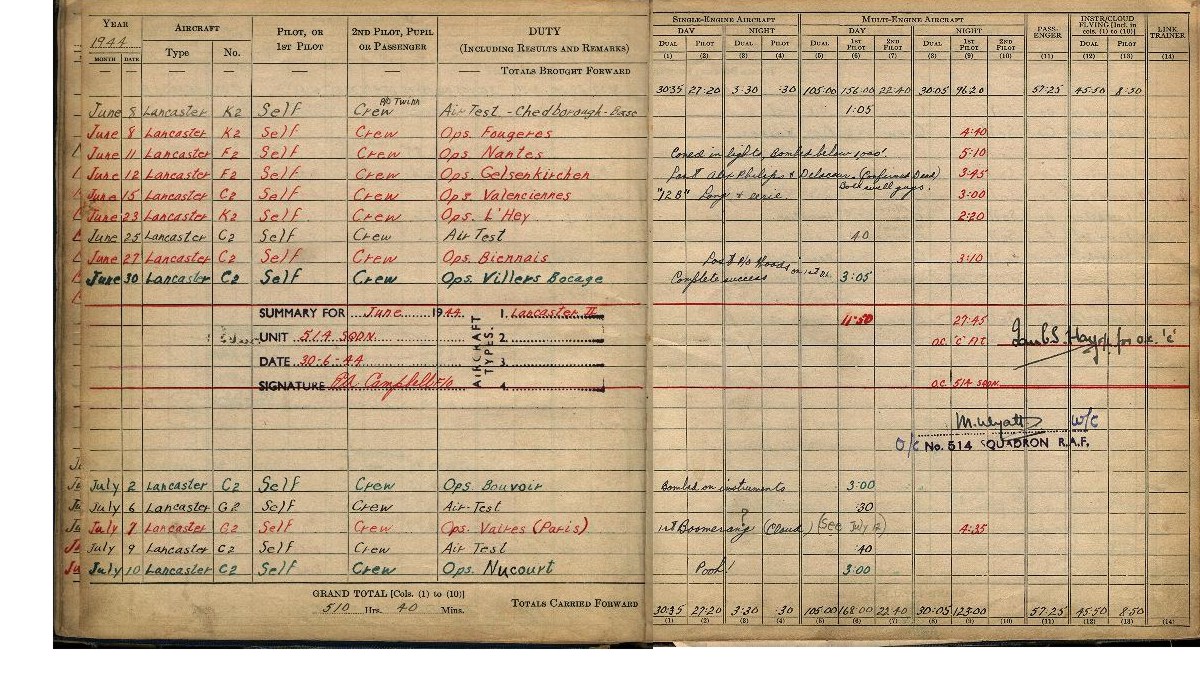 YEAR AIRCRAFT PILOT, OR 1ST PILOT 2ND PILOT, PUPIL OR PASSENGER DUTY (INCLUDING RESULTS AND REMARKS) SINGLE-ENGINE AIRCRAFT MULTI-ENGINE AIRCRAFT PASS-ENGER INSTR/CLOUD FLYING [Incl. in cols. (1) to (10)] LINK TRAINER
1944 Type No. DAY NIGHT DAY NIGHT
MONTH DATE DUAL PILOT DUAL PILOT DUAL 1ST PILOT 2ND PILOT DUAL 1ST PILOT 2ND PILOT DUAL PILOT
(1) (2) (3) (4) (5) (6) (7) (8) (9) (10) (11) (12) (13) (14)
— — — — — — — TOTALS BROUGHT FORWARD
30:35 27:20 5:30 :30 105:00 156:00 22:40 30:05 96:20 57:25 45:50 8:50
June 8 Lancaster K2 Self Crew P/O Twinn Air Test - Chedborough - Base 1:05
June 8 Lancaster K2 Self Crew Ops. Fougeres 4:40
June 11 Lancaster F2 Self Crew Ops. Nantes Coned in lights, bombed below 1,000'. 5:10
June 12 Lancaster F2 Self Crew Ops. Gelsenkirchen Philips & Delacour (Confirmed Dead) 3:45
Both swell guys.
June 15 Lancaster C2 Self Crew Ops. Valenciennes "12 B" Long & eerie. 3:00
June 23 Lancaster K2 Self Crew Ops. L'Hey 2:20
June 25 Lancaster C2 Self Crew Air Test :40
June 27 Lancaster C2 Self Crew Ops. Biennais Lost P/O Woods on 1st 3:10
June 30 Lancaster C2 Self Crew Ops. Villers Bocage Complete success 3:05
SUMMARY FOR June 1944 1. Lancaster II 11:50 27:45
UNIT 514 SQDN. AIRCRAFT TYPES. 2. O.C. 'C' FLT. for o.c. 'c'
DATE 30-6-44 3.
SIGNATURE Campbell F/O 4. O.C. 514 SQDN.
M. Wyatt W/C
O/C No. 514 SQUADRON R.A.F.
July 2 Lancaster C2 Self Crew Ops. Bouvoir Bombed on instruments 3:00
July 6 Lancaster G2 Self Crew Air-Test :30
July 7 Lancaster G2 Self Crew Ops. Vaires (Paris) 1st Boomerang ? (Cloud) (See July 12) 4:35
July 9 Lancaster C2 Self Crew Air Test :40
July 10 Lancaster C2 Self Crew Ops. Nucourt Pooh! 3:00
GRAND TOTAL [Cols. (1) to (10)]
510 Hrs. 40 Mins. TOTALS CARRIED FORWARD 30:35 27:20 3:30 :30 105:00 168:00 22:40 30:05 123:00 57:25 45:50 8:50
(1) (2) (3) (4) (5) (6) (7) (8) (9) (10) (11) (12) (13) (14)